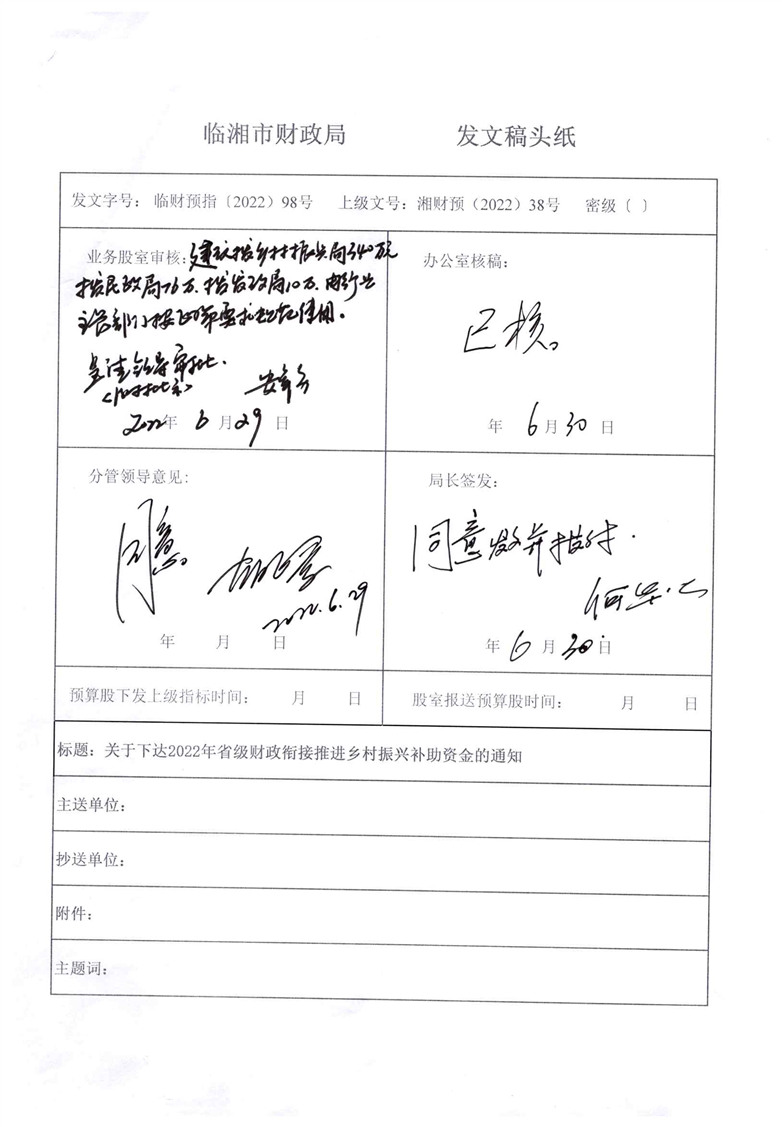 临湘市财政局 发文稿头纸
发文字号： 临财预指〔2022〕98号 上级文号：湘财预（2022）38号 密级〔 〕
业务股室审核：建议拨乡村振兴局340万元
拨民政局76万、拨发改局10万、由行业
主管部门按政策要求规范使用。
呈请领导审批。
2022年 6月29日
办公室核稿：
已核。
年 6月30日
分管领导意见：
同意
2022.6.29
年 月 日
局长签发：
同意发文并拨付.
年 6月30日
预算股下发上级指标时间： 月 日
股室报送预算股时间： 月 日
标题：关于下达2022年省级财政衔接推进乡村振兴补助资金的通知
主送单位：
抄送单位：
附件：
主题词：